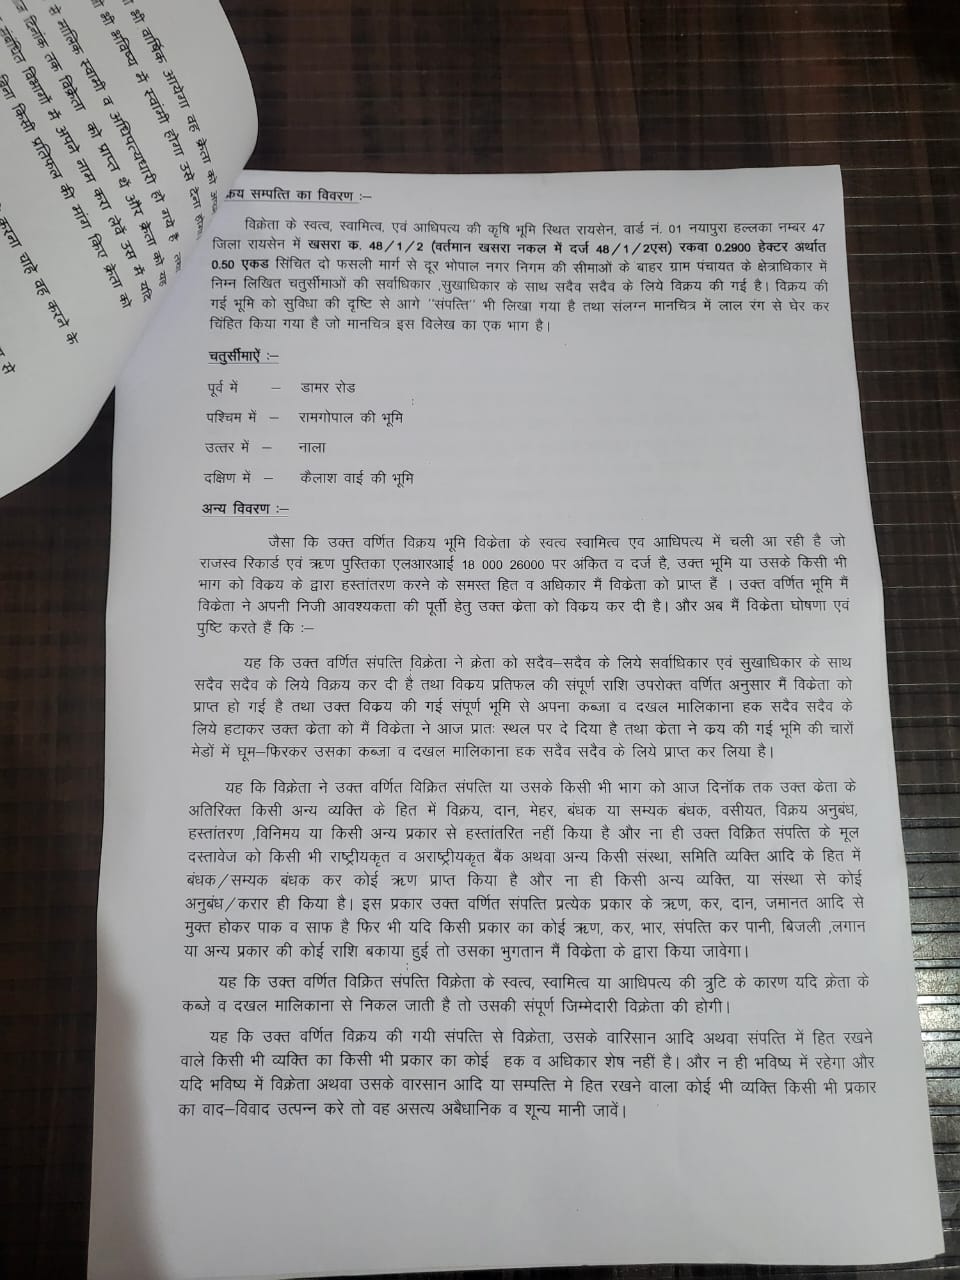 भी वार्षिक आयेगा वह क्रेता को
भी भविष्य में स्वांमी होगा उसे देना
से मालिक स्वामी व अधिपत्यधारी हो गये है
दिनांक तक विक्रेता को प्राप्त थें और क्रेता को यह
संबंधित विभागों में अपने नाम करा लेवें उस में यदि
बिना किसी प्रतिफल की मांग किए क्रेता को
करना चाहे वह करने के
से
क्रय सम्पत्ति का विवरण :–
विक्रेता के स्वत्व, स्वामित्व, एवं आधिपत्य की कृषि भूमि स्थित रायसेन, वार्ड नं. 01 नयापुरा हल्लका नम्बर 47
जिला रायसेन में खसरा क. 48/1/2 (वर्तमान खसरा नकल में दर्ज 48/1/2एस) रकवा 0.2900 हेक्टर अर्थात
0.50 एकड सिंचित दो फसली मार्ग से दूर भोपाल नगर निगम की सीमाओं के बाहर ग्राम पंचायत के क्षेत्राधिकार में
निम्न लिखित चतुर्सीमाओं की सर्वाधिकार ,सुखाधिकार के साथ सदैव सदैव के लिये विक्रय की गई है। विक्रय की
गई भूमि को सुविधा की दृष्टि से आगे ''संपत्ति'' भी लिखा गया है तथा संलग्न मानचित्र में लाल रंग से घेर कर
चिंहित किया गया है जो मानचित्र इस विलेख का एक भाग है।
चतुर्सीमाऐं :–
पूर्व में – डामर रोड
पश्चिम में – रामगोपाल की भूमि
उत्तर में – नाला
दक्षिण में – कैलाश वाई की भूमि
अन्य विवरण :–
जैसा कि उक्त वर्णित विक्रय भूमि विक्रेता के स्वत्व स्वामित्व एव आधिपत्य में चली आ रही है जो
राजस्व रिकार्ड एवं ऋण पुस्तिका एलआरआई 18 000 26000 पर अंकित व दर्ज है, उक्त भूमि या उसके किसी भी
भाग को विक्रय के द्वारा हस्तांतरण करने के समस्त हित व अधिकार मैं विक्रेता को प्राप्त हैं । उक्त वर्णित भूमि मैं
विक्रेता ने अपनी निजी आवश्यकता की पूर्ती हेतु उक्त क्रेता को विक्रय कर दी है। और अब मैं विक्रेता घोषणा एवं
पुष्टि करते हैं कि :–
यह कि उक्त वर्णित संपत्ति विक्रेता ने क्रेता को सदैव–सदैव के लिये सर्वाधिकार एवं सुखाधिकार के साथ
सदैव सदैव के लिये विक्रय कर दी है तथा विक्रय प्रतिफल की संपूर्ण राशि उपरोक्त वर्णित अनुसार मैं विक्रेता को
प्राप्त हो गई है तथा उक्त विक्रय की गई संपूर्ण भूमि से अपना कब्जा व दखल मालिकाना हक सदैव सदैव के
लिये हटाकर उक्त क्रेता को मैं विक्रेता ने आज प्रातः स्थल पर दे दिया है तथा क्रेता ने क्रय की गई भूमि की चारों
मेडों में घूम–फिरकर उसका कब्जा व दखल मालिकाना हक सदैव सदैव के लिये प्राप्त कर लिया है।
यह कि विक्रेता ने उक्त वर्णित विक्रित संपत्ति या उसके किसी भी भाग को आज दिनॉक तक उक्त क्रेता के
अतिरिक्त किसी अन्य व्यक्ति के हित में विक्रय, दान, मेहर, बंधक या सम्यक बंधक, वसीयत, विक्रय अनुबंध,
हस्तांतरण ,विनिमय या किसी अन्य प्रकार से हस्तांतरित नहीं किया है और ना ही उक्त विक्रित संपत्ति के मूल
दस्तावेज को किसी भी राष्ट्रीयकृत व अराष्ट्रीयकृत बैंक अथवा अन्य किसी संस्था, समिति व्यक्ति आदि के हित में
बंधक/सम्यक बंधक कर कोई ऋण प्राप्त किया है और ना ही किसी अन्य व्यक्ति, या संस्था से कोई
अनुबंध/करार ही किया है। इस प्रकार उक्त वर्णित संपत्ति प्रत्येक प्रकार के ऋण, कर, दान, जमानत आदि से
मुक्त होकर पाक व साफ है फिर भी यदि किसी प्रकार का कोई ऋण, कर, भार, संपत्ति कर पानी, बिजली ,लगान
या अन्य प्रकार की कोई राशि बकाया हुई तो उसका भुगतान मैं विक्रेता के द्वारा किया जावेगा।
यह कि उक्त वर्णित विक्रित संपत्ति विक्रेता के स्वत्व, स्वामित्व या आधिपत्य की त्रुटि के कारण यदि क्रेता के
कब्जे व दखल मालिकाना से निकल जाती है तो उसकी संपूर्ण जिम्मेदारी विक्रेता की होगी।
यह कि उक्त वर्णित विक्रय की गयी संपत्ति से विक्रेता, उसके वारिसान आदि अथवा संपत्ति में हित रखने
वाले किसी भी व्यक्ति का किसी भी प्रकार का कोई हक व अधिकार शेष नहीं है। और न ही भविष्य में रहेगा और
यदि भविष्य में विक्रेता अथवा उसके वारसान आदि या सम्पत्ति मे हित रखने वाला कोई भी व्यक्ति किसी भी प्रकार
का वाद–विवाद उत्पन्न करे तो वह असत्य अबैधानिक व शून्य मानी जावें।